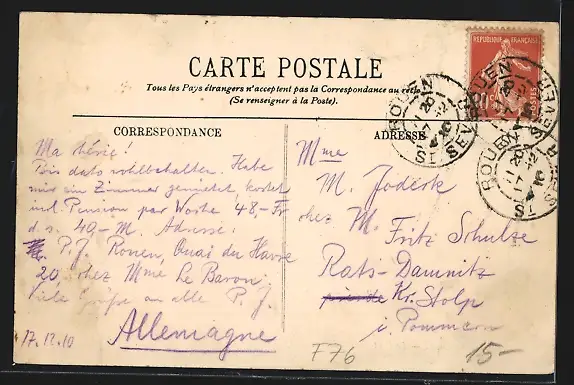 CARTE POSTALE
Tous les Pays étrangers n'acceptent pas la Correspondance au recto
(Se renseigner à la Poste).
CORRESPONDANCE
Ma chérie!
Bis dato wohlbehalten. Habe
mir ein Zimmer gemietet, kostet
incl. Pension per Woche 48,- Fr
d. s. 40,- M. Adresse:
P. J. Rouen, Quai du Havre
20, chez Mme Le Baron,
Viele Grüße an alle P. J.
Allemagne
17.12.10
ADRESSE
Mme
M. Joderk
chez M. Fritz Schulze
Rats-Damnitz
Kr. Stolp
i. Pommern
F76
15-
REPUBLIQUE FRANÇAISE
10
POSTES
ROUEN
ST SEVER
ROUEN
ST SEVER
ROUEN
ST SEVER